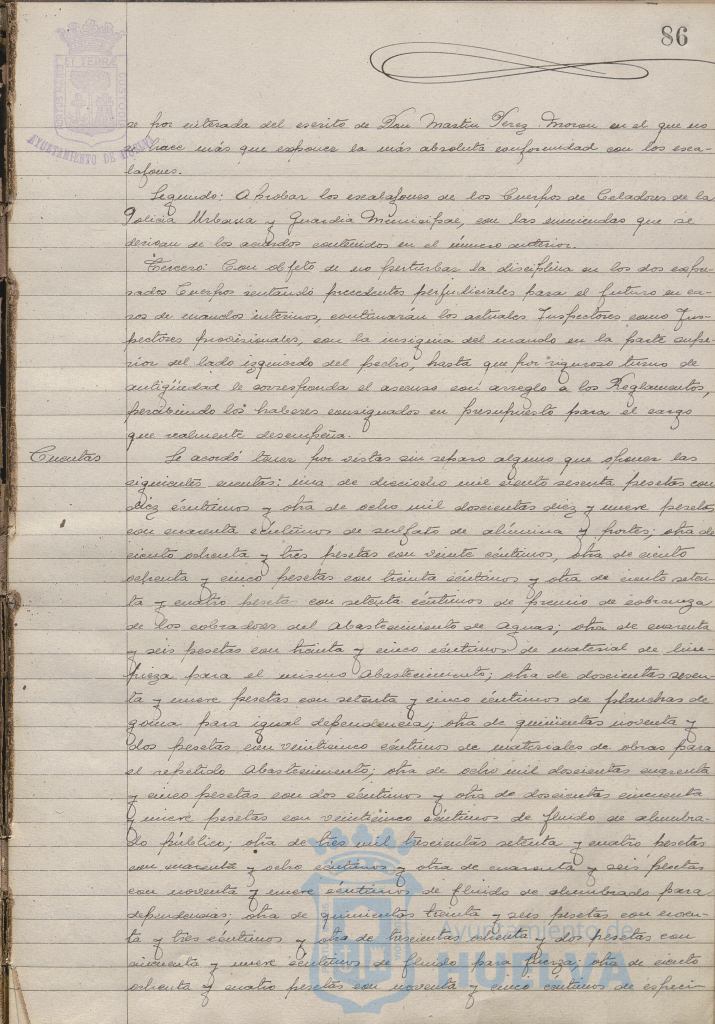 86
PORTUS MARIS ET TERRAE CUSTODIA
AYUNTAMIENTO DE HUELVA
se por enterada del escrito de Don Martin Perez Moron en el que no
hace más que exponer la más absoluta conformidad con los esca-
lafones.
Segundo: Aprobar los escalafones de los Cuerpos de Celadores de la
Policia Urbana y Guardia Municipal, con las enmiendas que se
derivan de los acuerdos contenidos en el número anterior.
Tercero: Con objeto de no perturbar la disciplina en los dos expre-
sados Cuerpos sentando precedentes perjudiciales para el futuro en ca-
sos de mandos interinos, continuarán los actuales Inspectores como Ins-
pectores provisionales, con la insignia del mando en la parte supe-
rior del lado izquierdo del pecho, hasta que por riguroso turno de
antigüedad le corresponda el ascenso con arreglo a los Reglamentos,
percibiendo los haberes consignados en presupuesto para el cargo
que realmente desempeña.
Cuentas
Se acordó tener por vistas sin reparo alguno que oponer las
siguientes cuentas: una de dieciocho mil ciento sesenta pesetas con
diez céntimos y otra de ocho mil doscientas diez y nueve pesetas
con cuarenta céntimos de sulfato de alúmina y portes; otra de
ciento ochenta y tres pesetas con veinte céntimos, otra de ciento
ochenta y cinco pesetas con treinta céntimos y otra de ciento seten-
ta y cuatro pesetas con setenta céntimos de premio de cobranza
de los cobradores del Abastecimiento de Aguas; otra de cuarenta
y seis pesetas con treinta y cinco céntimos de material de lim-
pieza para el mismo Abastecimiento; otra de doscientas sesen-
ta y nueve pesetas con setenta y cinco céntimos de planchas de
goma para igual dependencia; otra de quinientas noventa y
dos pesetas con veinticinco céntimos de materiales de obras para
el repetido Abastecimiento; otra de ocho mil doscientas cuarenta
y cinco pesetas con dos céntimos y otra de doscientas cincuenta
y nueve pesetas con veinticinco céntimos de fluido de alumbra-
do público; otra de tres mil trescientas setenta y cuatro pesetas
con cuarenta y ocho céntimos y otra de cuarenta y seis pesetas
con noventa y nueve céntimos de fluido de alumbrado para
dependencias; otra de quinientas treinta y seis pesetas con noven-
ta y tres céntimos y otra de trescientas ochenta y dos pesetas con
cincuenta y nueve céntimos de fluido para fuerza; otra de ciento
ochenta y cuatro pesetas con noventa y cinco céntimos de especí-
Ayuntamiento de
HUELVA